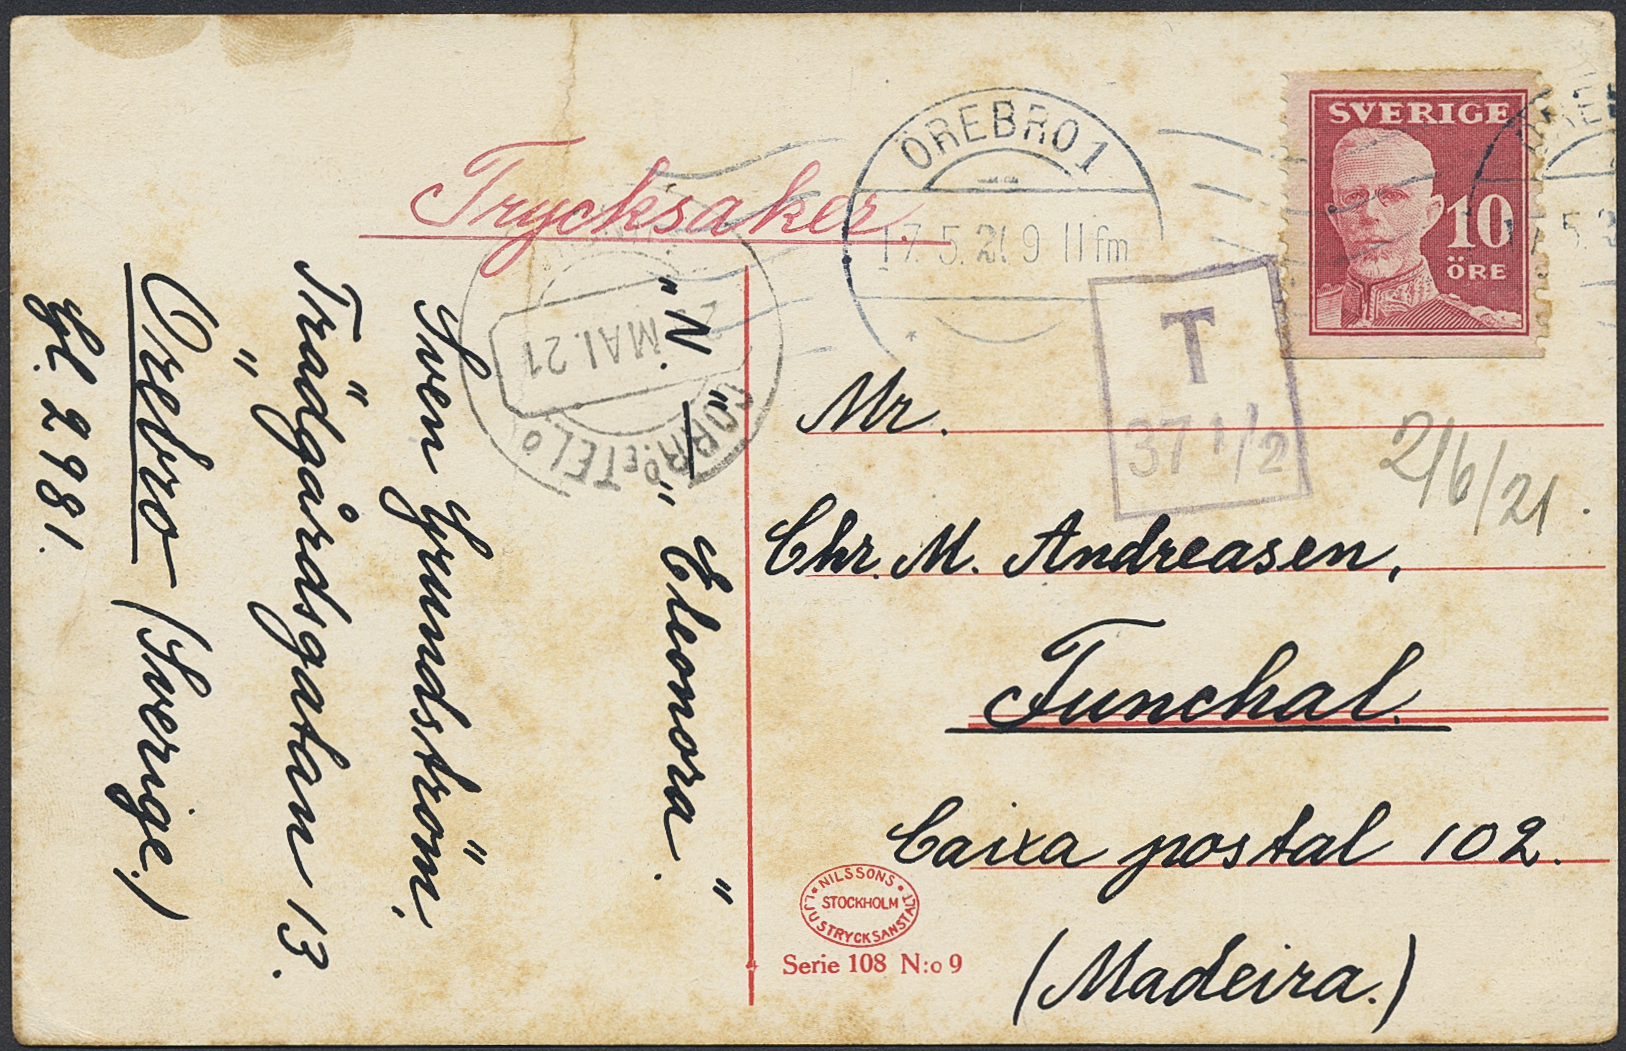 Trycksaker.
SVERIGE
10
ÖRE
ÖREBRO 1
17.5.21 9 11 fm
T
37 1/2
2/6/21.
MAI. 21
CORR.º E TELº
Mr.
Chr. M. Andreasen,
Funchal.
Caixa postal 102.
(Madeira.)
NILSSONS
STOCKHOLM
LJUSTRYCKSANSTALT
Serie 108 N:o 9
"Eleonora."
Sven Grundström,
Trädgårdsgatan 13.
Örebro (Sverige.)
2981.